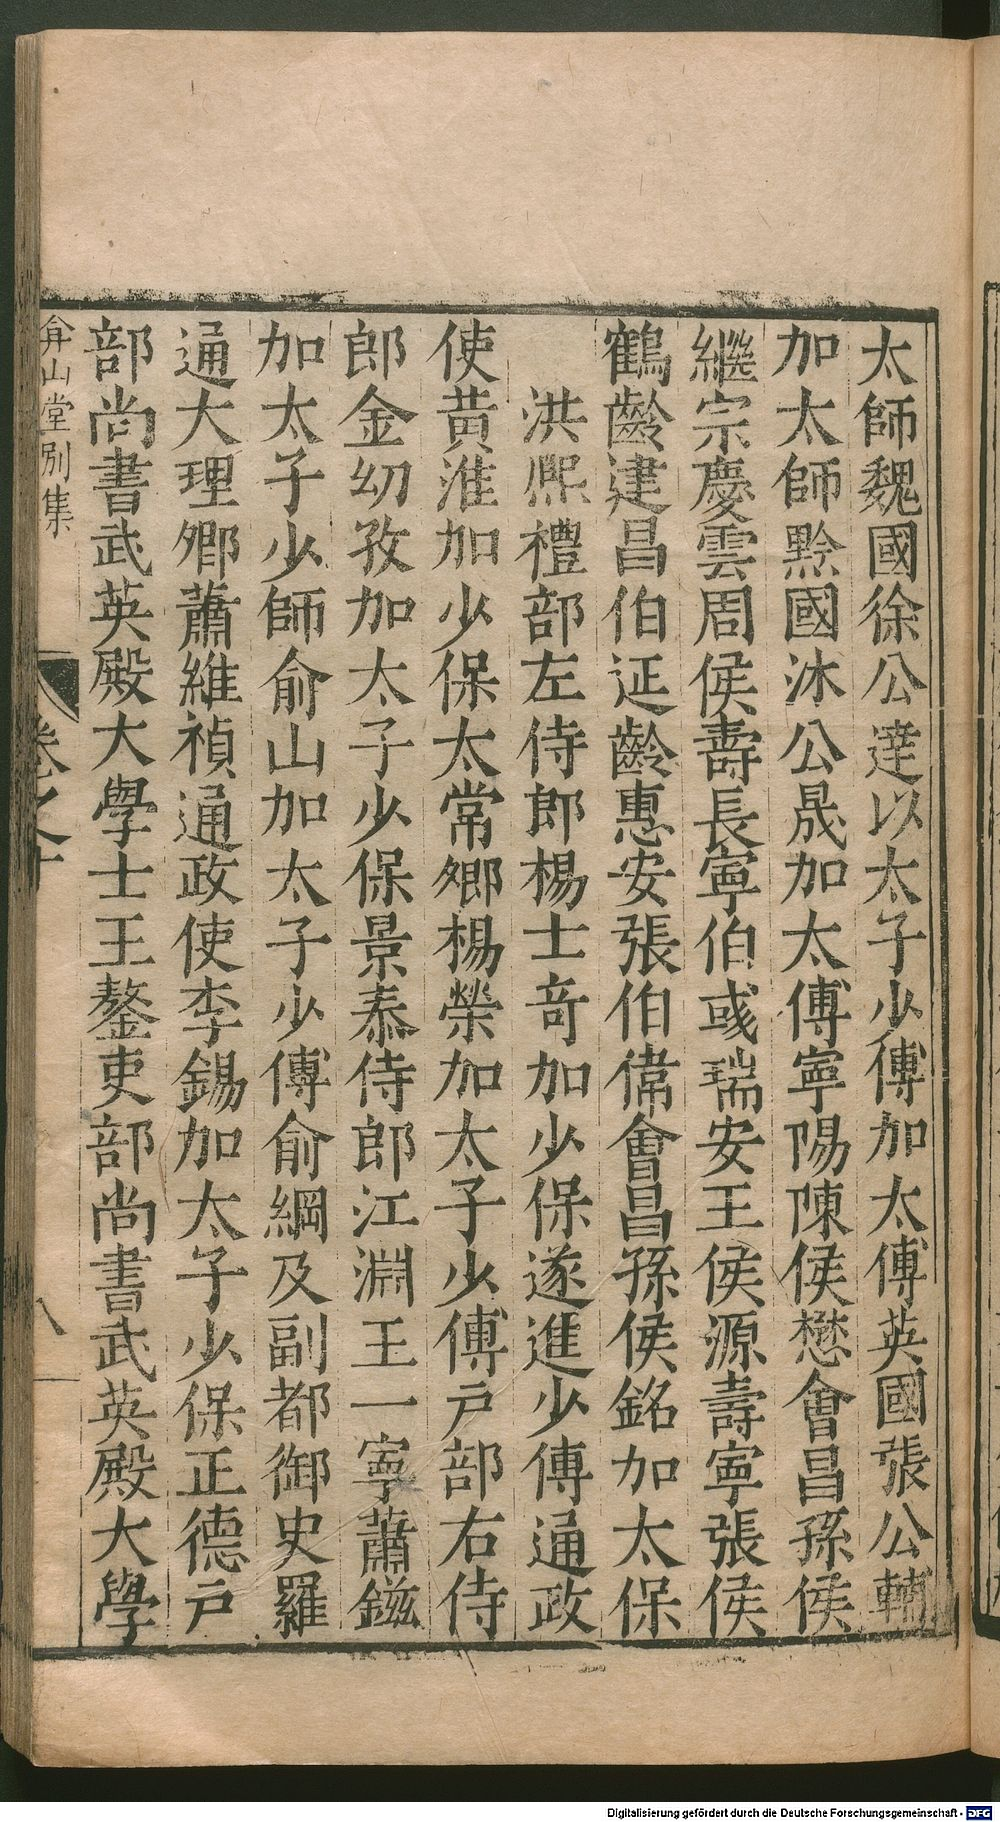 太師魏國徐公達以太子少傅加太傅英國張公輔
加太師黔國沐公晟加太傅寧陽陳侯懋會昌孫侯
繼宗慶雲周侯壽長寧伯彧瑞安王侯源壽寧張侯
鶴齡建昌伯延齡惠安張伯偉會昌孫侯銘加太保
洪熙禮部左侍郎楊士奇加少保遂進少傅通政
使黃淮加少保太常卿楊榮加太子少傅戶部右侍
郎金幼孜加太子少保景泰侍郎江淵王一寧蕭鎡
加太子少師俞山加太子少傅俞綱及副都御史羅
通大理卿蕭維禎通政使李錫加太子少保正德戶
部尚書武英殿大學士王鏊吏部尚書武英殿大學
弇山堂別集
卷之十
八
Digitalisierung gefördert durch die Deutsche Forschungsgemeinschaft - DFG